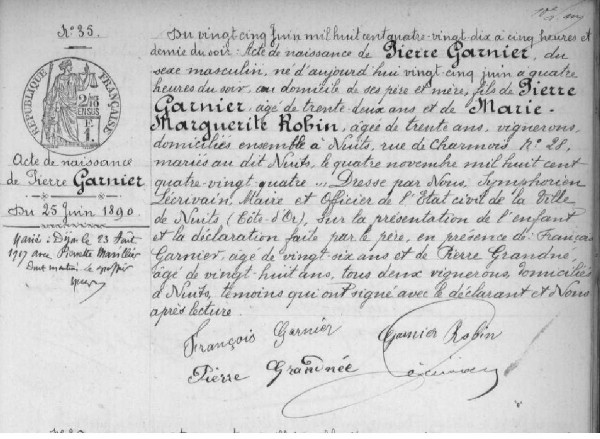 N° 35.
RÉPUBLIQUE FRANÇAISE
Acte de naissance
de Pierre Garnier
Du 25 Juin 1890.
Marié à Dijon le 23 Août
1917 avec Pierrette
Du vingt cinq Juin mil huit cent quatre-vingt-dix à cinq heures et
demie du soir. Acte de naissance de Pierre Garnier, du
sexe masculin, né d'aujourd'hui vingt-cinq juin à quatre
heures du soir, au domicile de ses père et mère, fils de Pierre
Garnier, âgé de trente deux ans et de Marie-
Marguerite Robin, âgée de trente ans, vignerons,
domiciliés ensemble à Nuits, rue de Charmois, N° 28,
mariés au dit Nuits, le quatre novembre mil huit cent
quatre-vingt-quatre ... Dressé par Nous, Symphorien
Lécrivain, Maire et Officier de l'Etat civil de la Ville
de Nuits (Côte-d'Or), sur la présentation de l'enfant
et la déclaration faite par le père, en présence de François
Garnier, âgé de vingt-six ans et de Pierre Grandné,
âgé de vingt-huit ans, tous deux vignerons, domiciliés
à Nuits, témoins qui ont signé avec le déclarant et Nous
après lecture.
François Garnier
Garnier Robin
Pierre Grandnée
Lécrivain